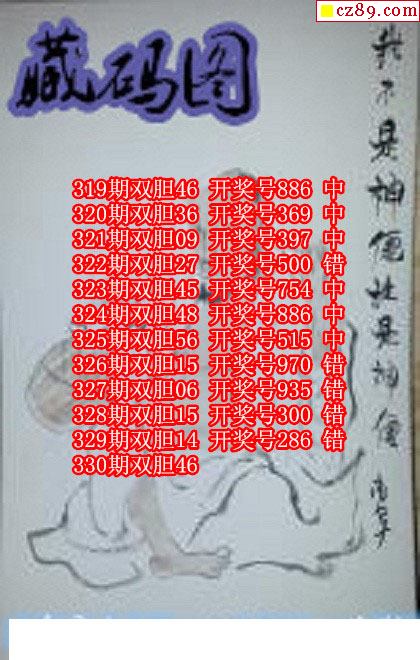 cz89.com
臓码图
319期双胆46 开奖号886 中
320期双胆36 开奖号369 中
321期双胆09 开奖号397 中
322期双胆27 开奖号500 错
323期双胆45 开奖号754 中
324期双胆48 开奖号886 中
325期双胆56 开奖号515 中
326期双胆15 开奖号970 错
327期双胆06 开奖号935 错
328期双胆15 开奖号300 错
329期双胆14 开奖号286 错
330期双胆46
我不是神僊谁是神僊